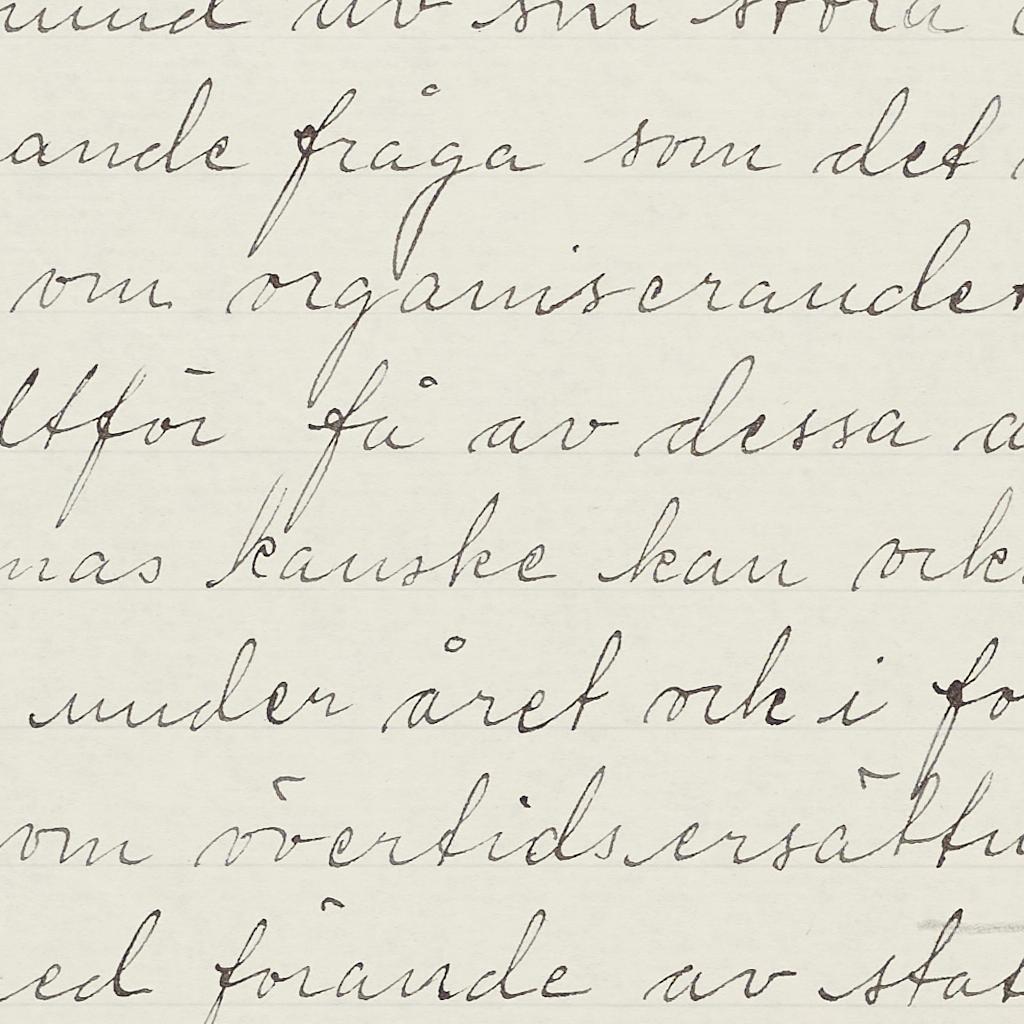 mund av sin stora
ande fråga som det
om organiserandet
ltför få av dessa a
nas kanske kan ock
under året ock i fo
om övertidsersättn
ed förande av stat